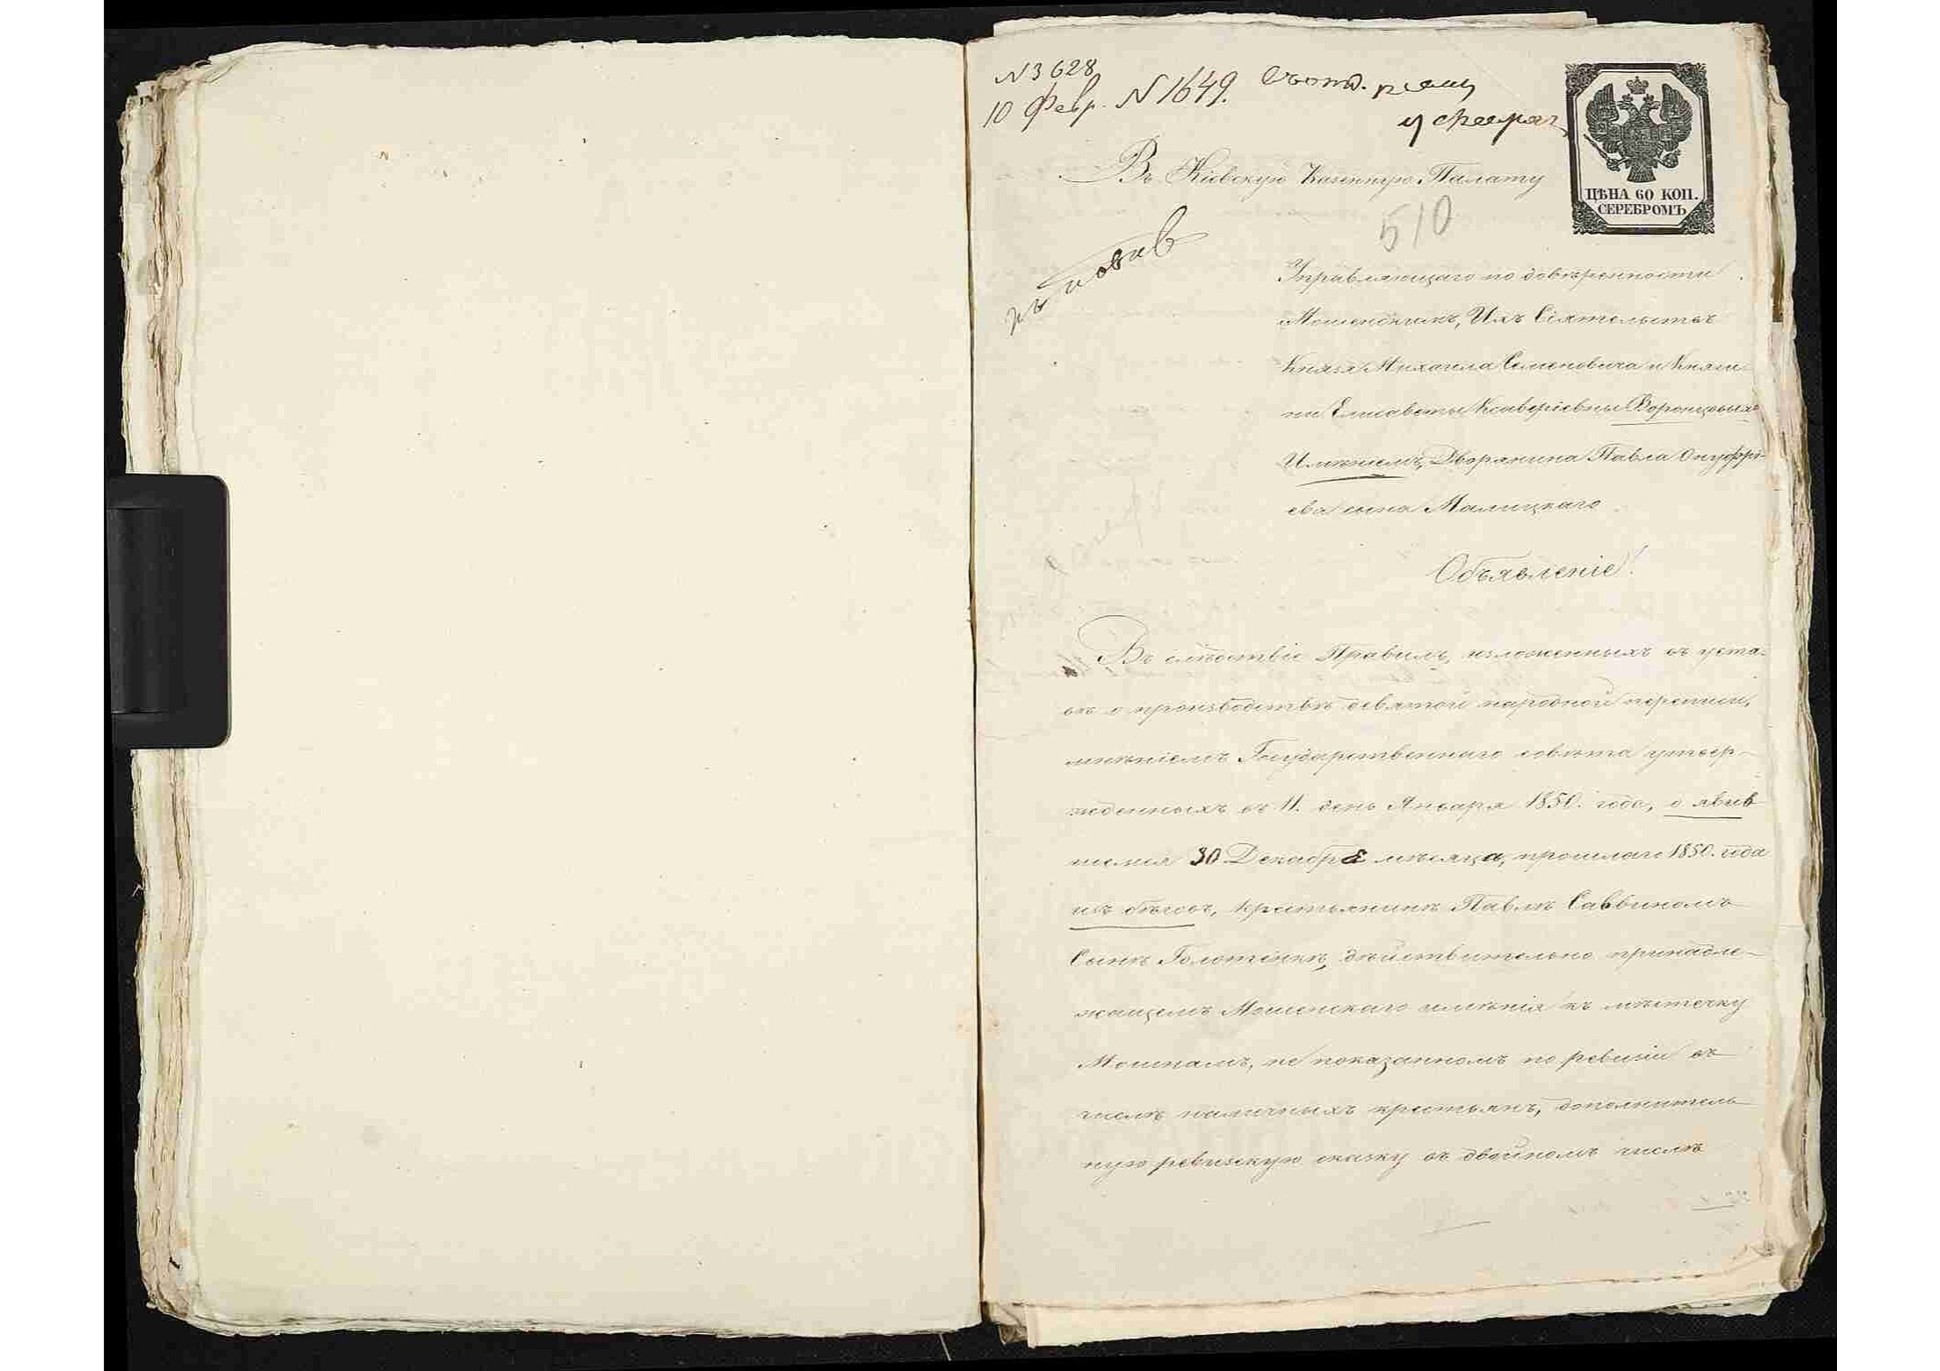 N 3628
10 Февр. N 1649.
ЦѢНА 60 КОП.
СЕРЕБРОМЪ
Въ Кіевскую Казенную Палату
510
Управляющаго по довѣренности
Мошенскимъ, Ихъ Сіятельствъ
Князя Михаила Семеновича и Княги-
ни Елисаветы Ксаверіевны Воронцовыхъ
Имѣніемъ, Дворянина Павла Онуфрі-
ева сына Малицкаго
Объявленіе!
Въ слѣдствіе Правилъ, изложенныхъ въ уста-
вѣ о производствѣ девятой народной переписи,
мнѣніемъ Государственнаго совѣта утвер-
жденныхъ въ 11. день Января 1850. года, о явив
шемся 30 Декабря мѣсяца, прошлаго 1850. года
изъ бѣговъ, крестьянинѣ Павлѣ Саввиномъ
Сынѣ Голотѣнкѣ, дѣйствительно принадле-
жащемъ Мошенскаго имѣнія къ мѣстечку
Мошнамъ, не показанномъ по ревизіи въ
числѣ наличныхъ крестьянъ, дополнитель-
ную ревизскую сказку въ двойномъ числѣ